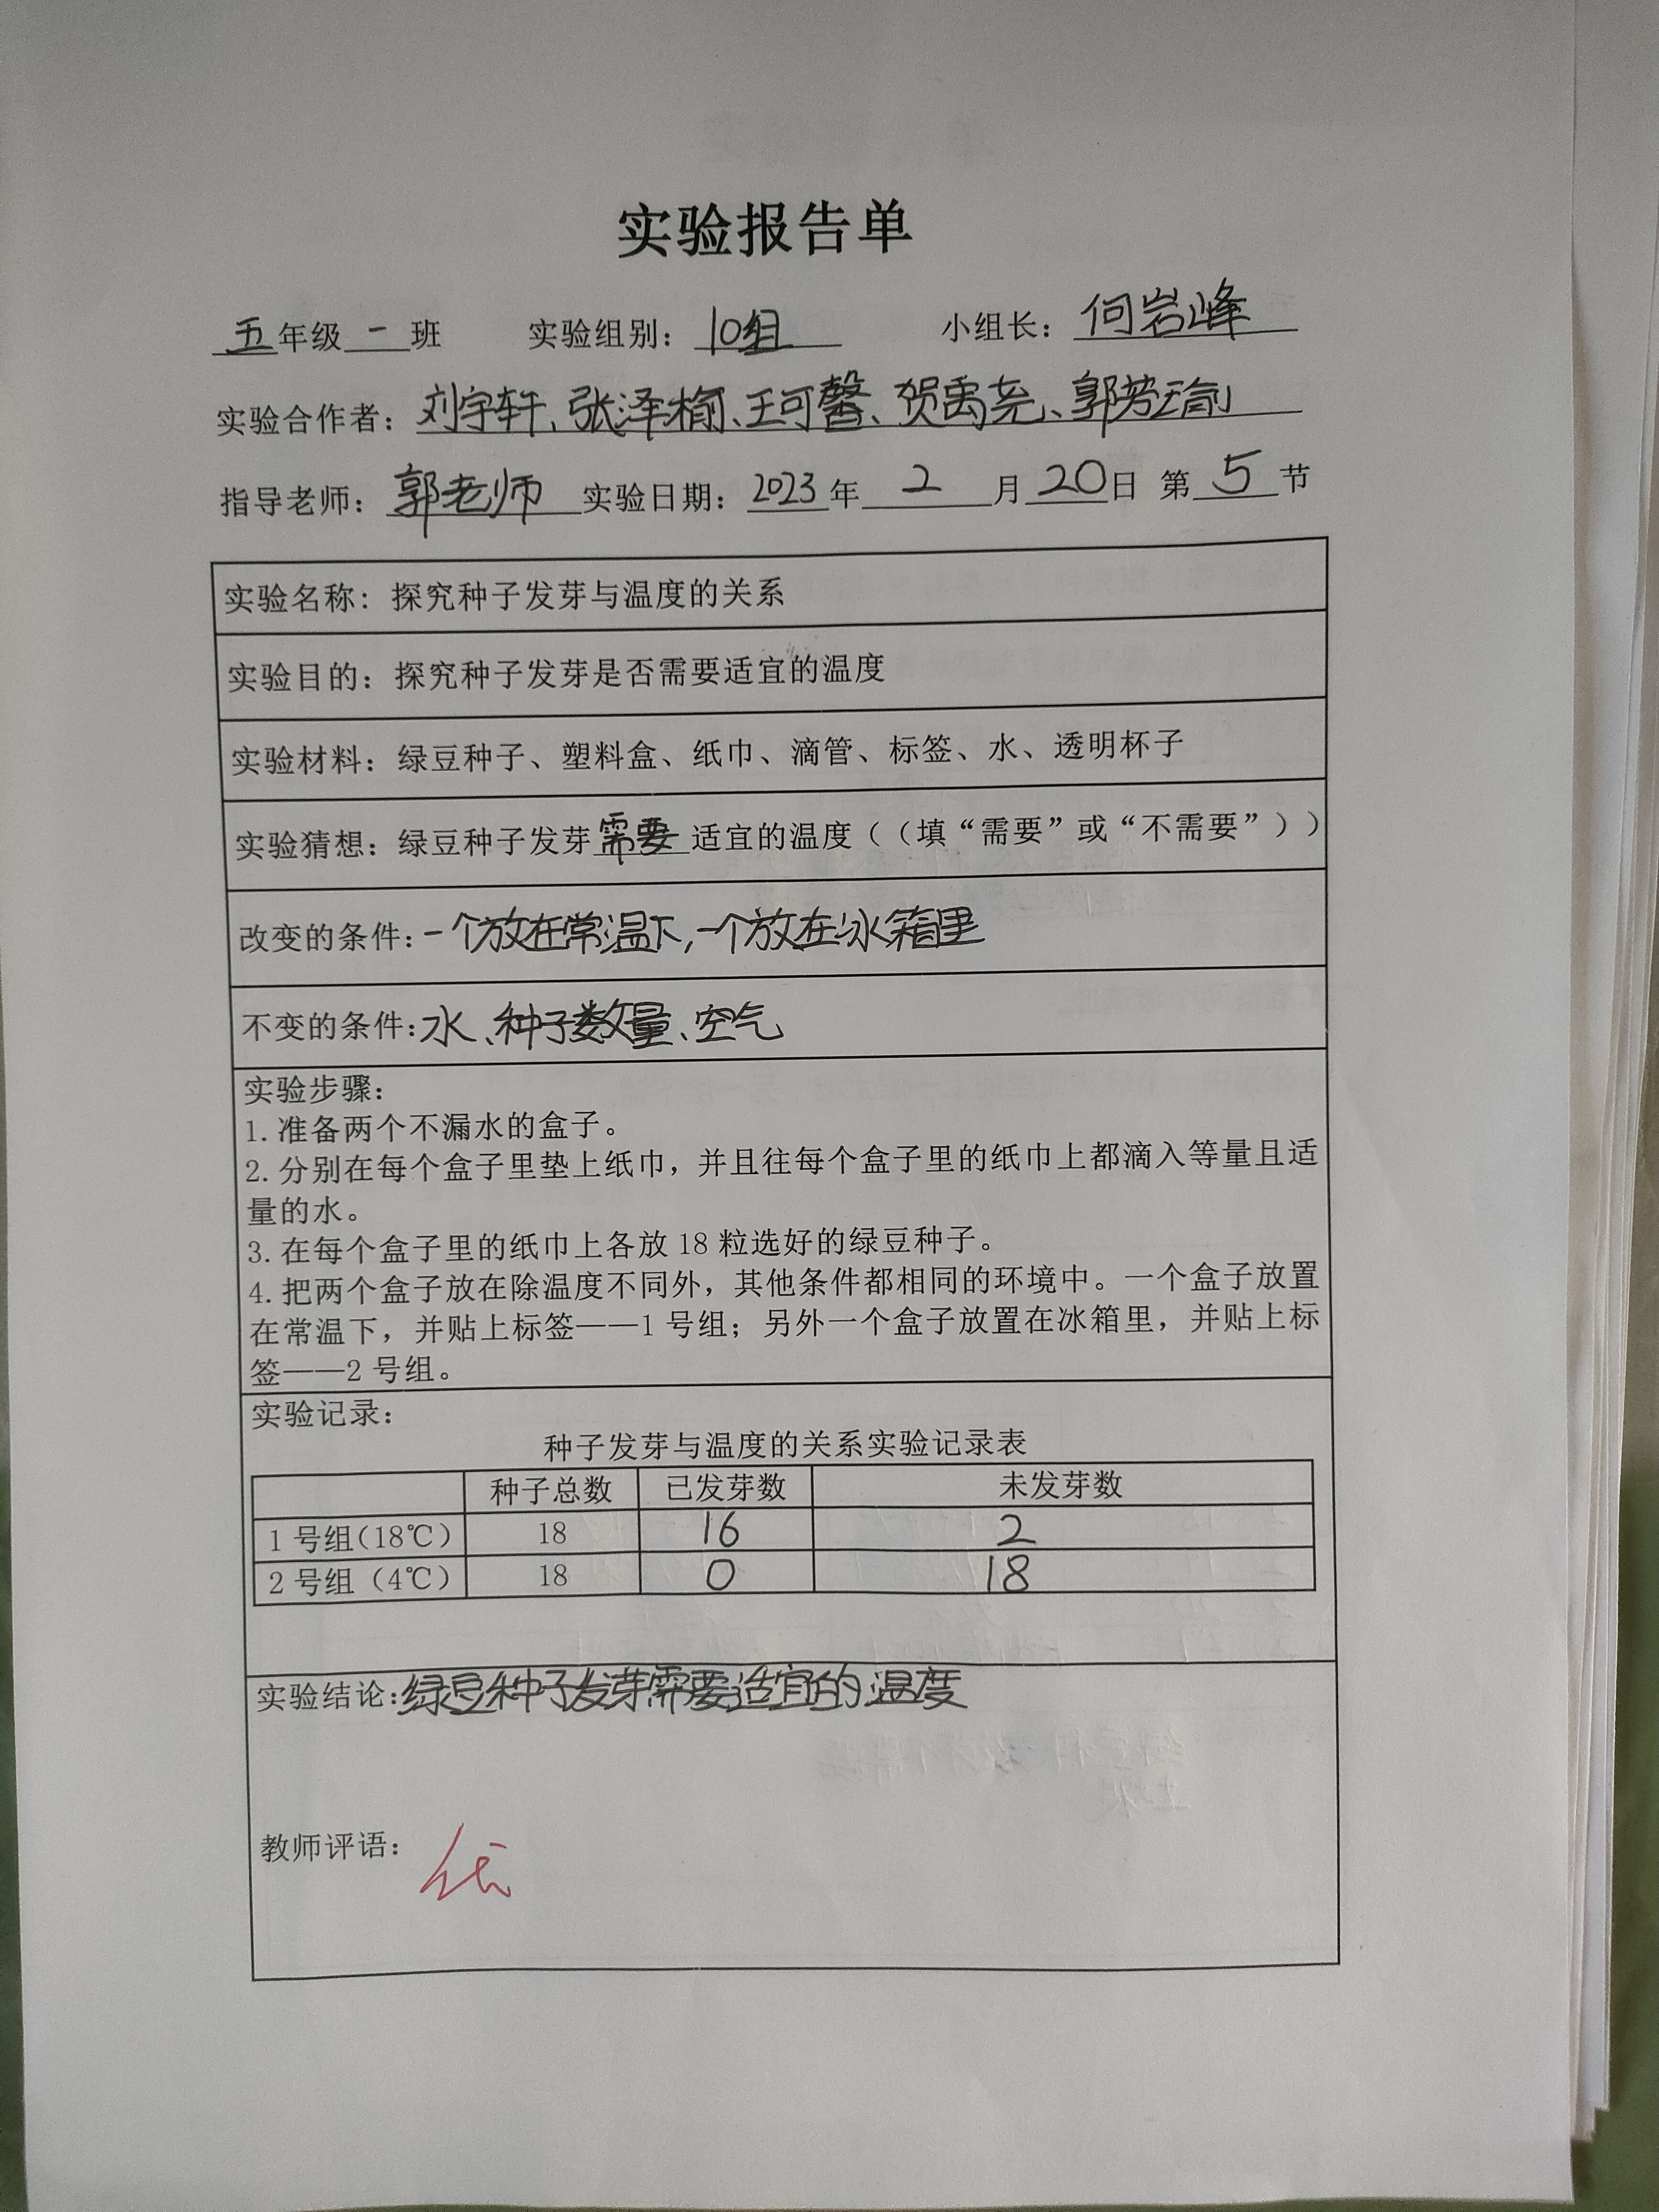 实验报告单
五年级一班 实验组别：10组 小组长：何岩峰
实验合作者：刘宇轩、张泽楠、王可馨、贺禹尧、郭芳瑜
指导老师：郭老师 实验日期：2023年2月20日 第5节
实验名称：探究种子发芽与温度的关系
实验目的：探究种子发芽是否需要适宜的温度
实验材料：绿豆种子、塑料盒、纸巾、滴管、标签、水、透明杯子
实验猜想：绿豆种子发芽需要适宜的温度（（填“需要”或“不需要”））
改变的条件：一个放在常温下，一个放在冰箱里
不变的条件：水、种子数量、空气
实验步骤：
1. 准备两个不漏水的盒子。
2. 分别在每个盒子里垫上纸巾，并且往每个盒子里的纸巾上都滴入等量且适
量的水。
3. 在每个盒子里的纸巾上各放 18 粒选好的绿豆种子。
4. 把两个盒子放在除温度不同外，其他条件都相同的环境中。一个盒子放置
在常温下，并贴上标签——1 号组；另外一个盒子放置在冰箱里，并贴上标
签——2 号组。
实验记录：
种子发芽与温度的关系实验记录表
种子总数 已发芽数 未发芽数
1 号组（18℃） 18 16 2
2 号组（4℃） 18 0 18
实验结论：绿豆种子发芽需要适宜的温度
教师评语：优